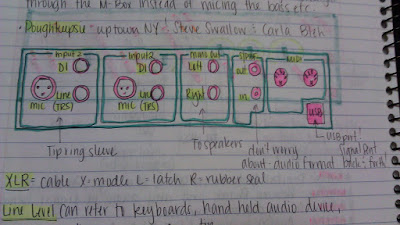 through the M-Box instead of micing the bass etc.
• Poughkeepsie - uptown NY: Steve Swallow & Carla Bley
Input 2 Input 2 mains Out
DI DI Left out
Line Line Right in
MIC (TRS) MIC (TRS) USB
Tip ring sleeve To speakers USB port:
don't worry
about - audio format
XLR = cable X = modle L = latch R = rubber seal
Line Level can refer to keyboards, hand held audio device,